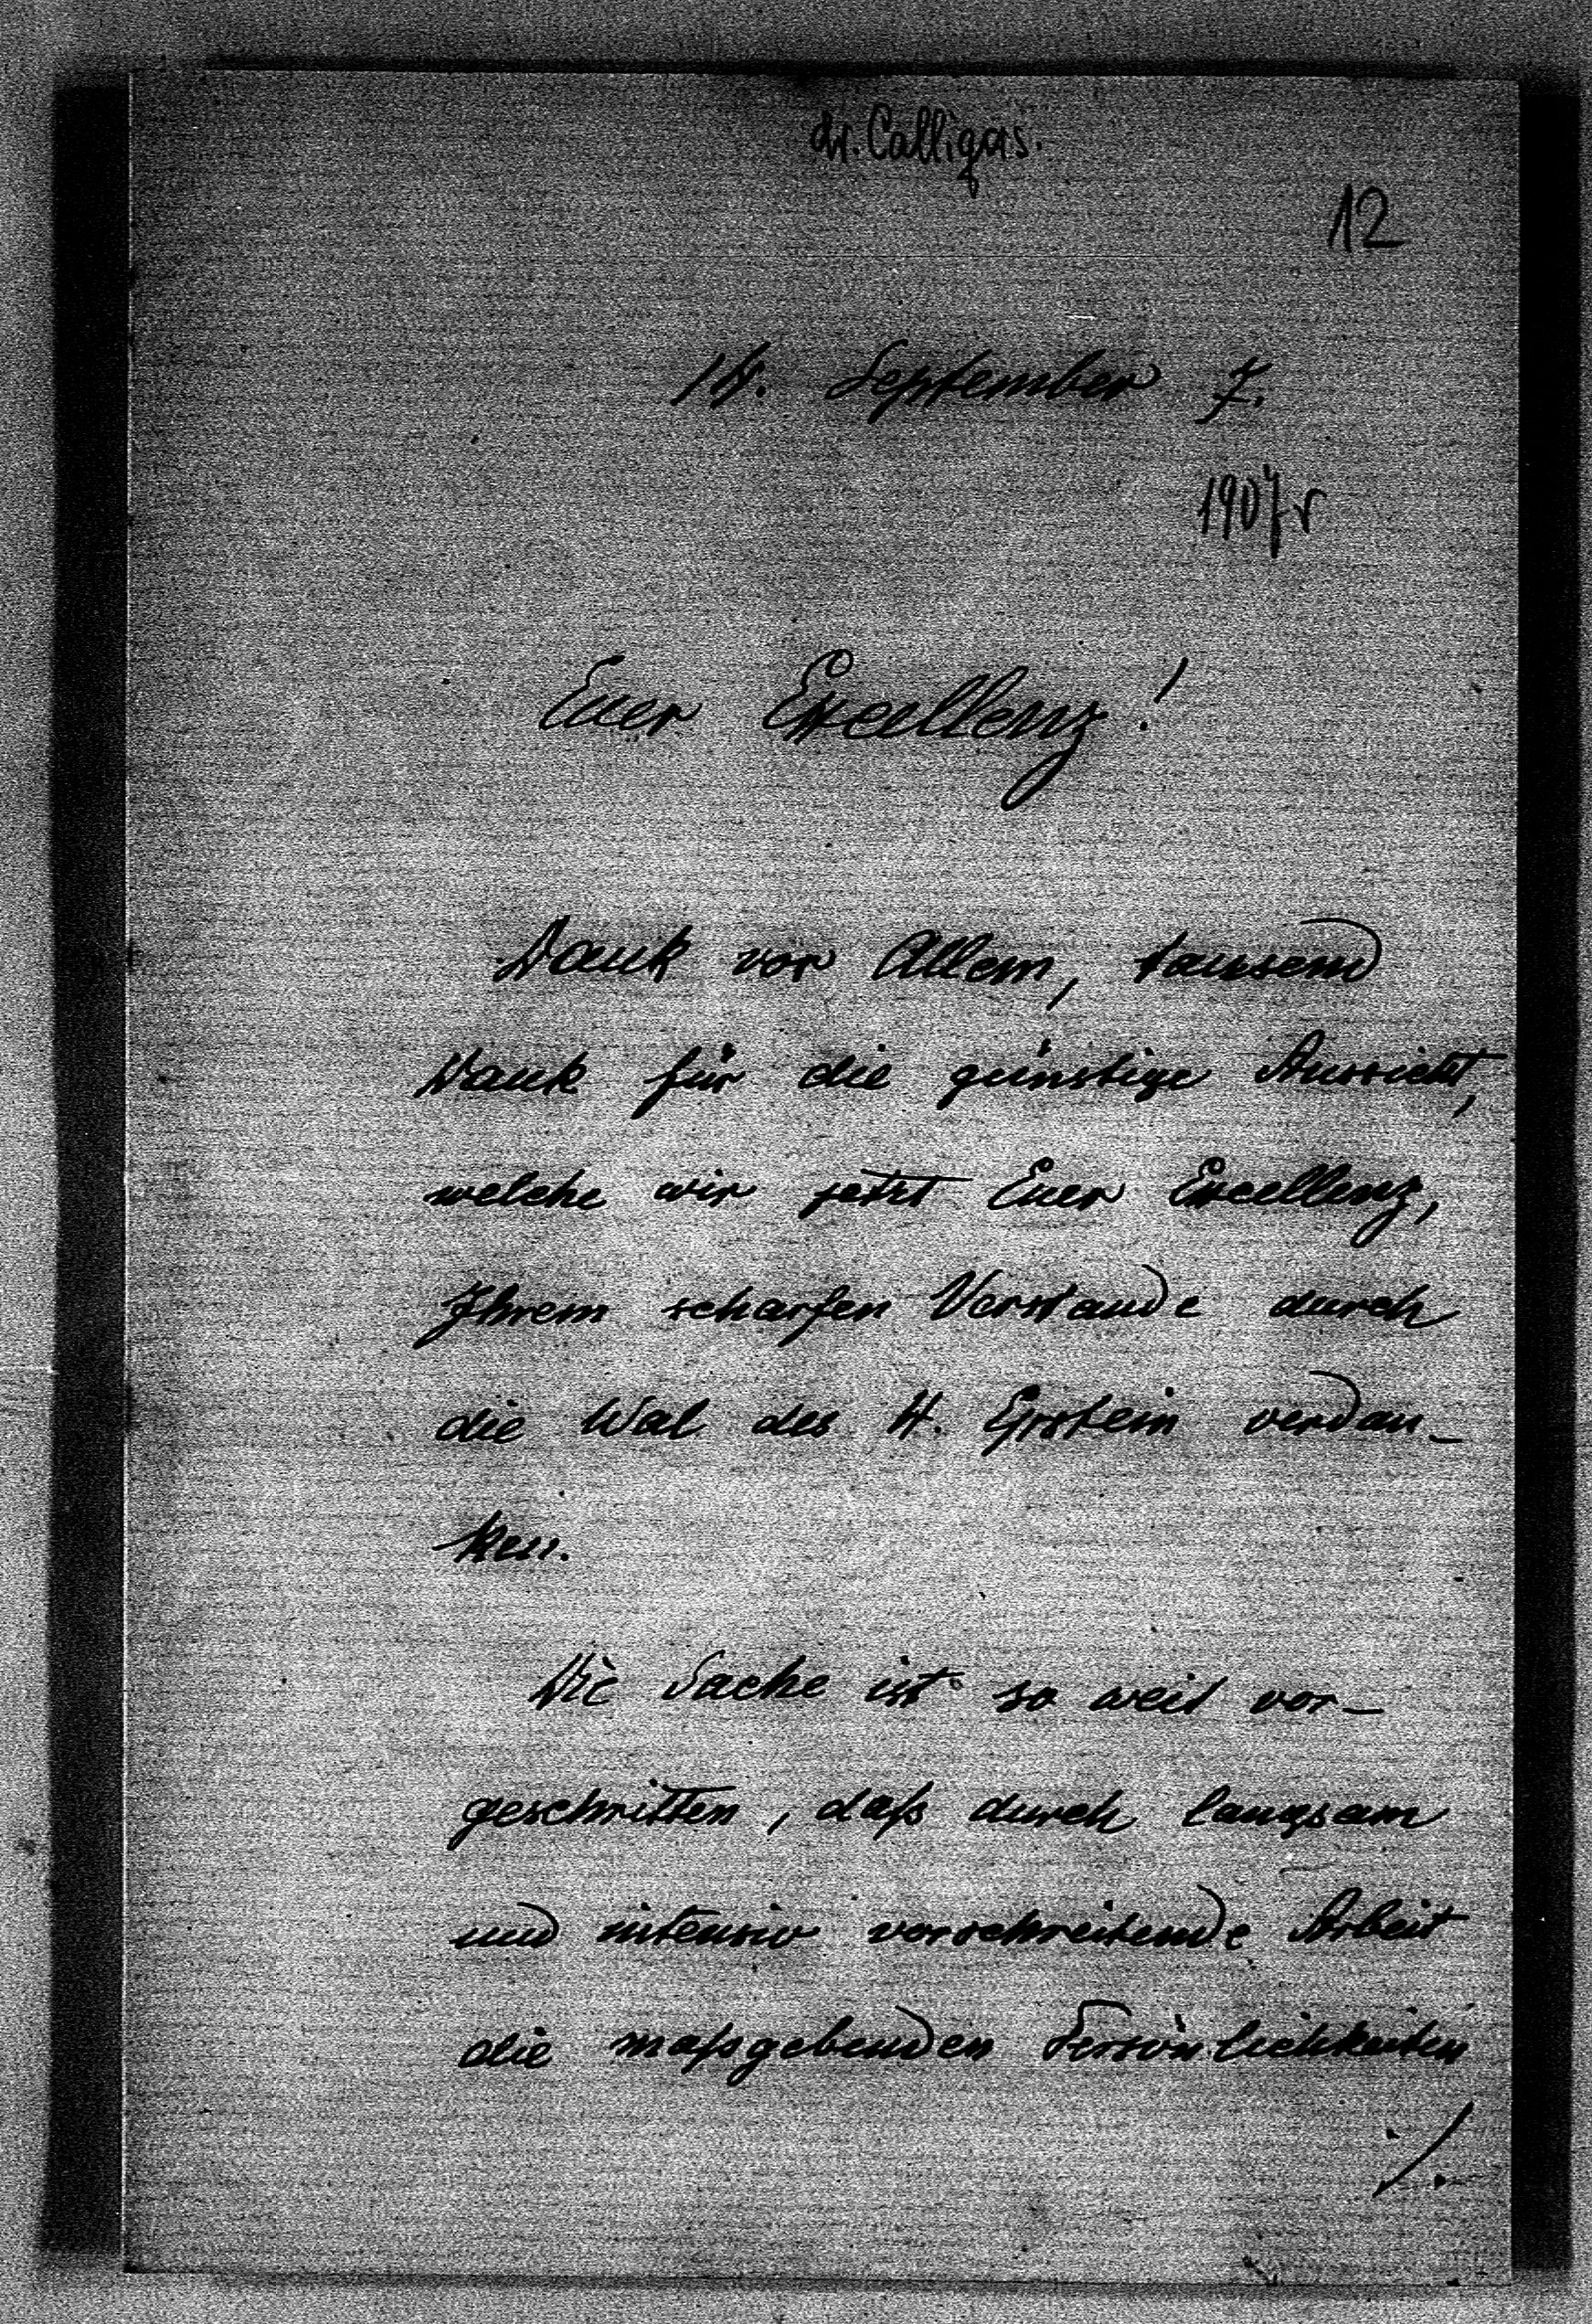 dr. Calligas.
12
14. September 7.
1907 r
Euer Excellenz!
Dank vor Allem, tausend
Dank für die günstige Aussicht,
welche wir jetzt Euer Excellenz,
Ihrem scharfen Verstande durch
die Wal des H. Epstein verdan-
ken.
Die Sache ist so weit vor-
geschritten, daß durch langsam
und intensiv vorschreitende Arbeit
die maßgebenden Persönlichkeiten
./.